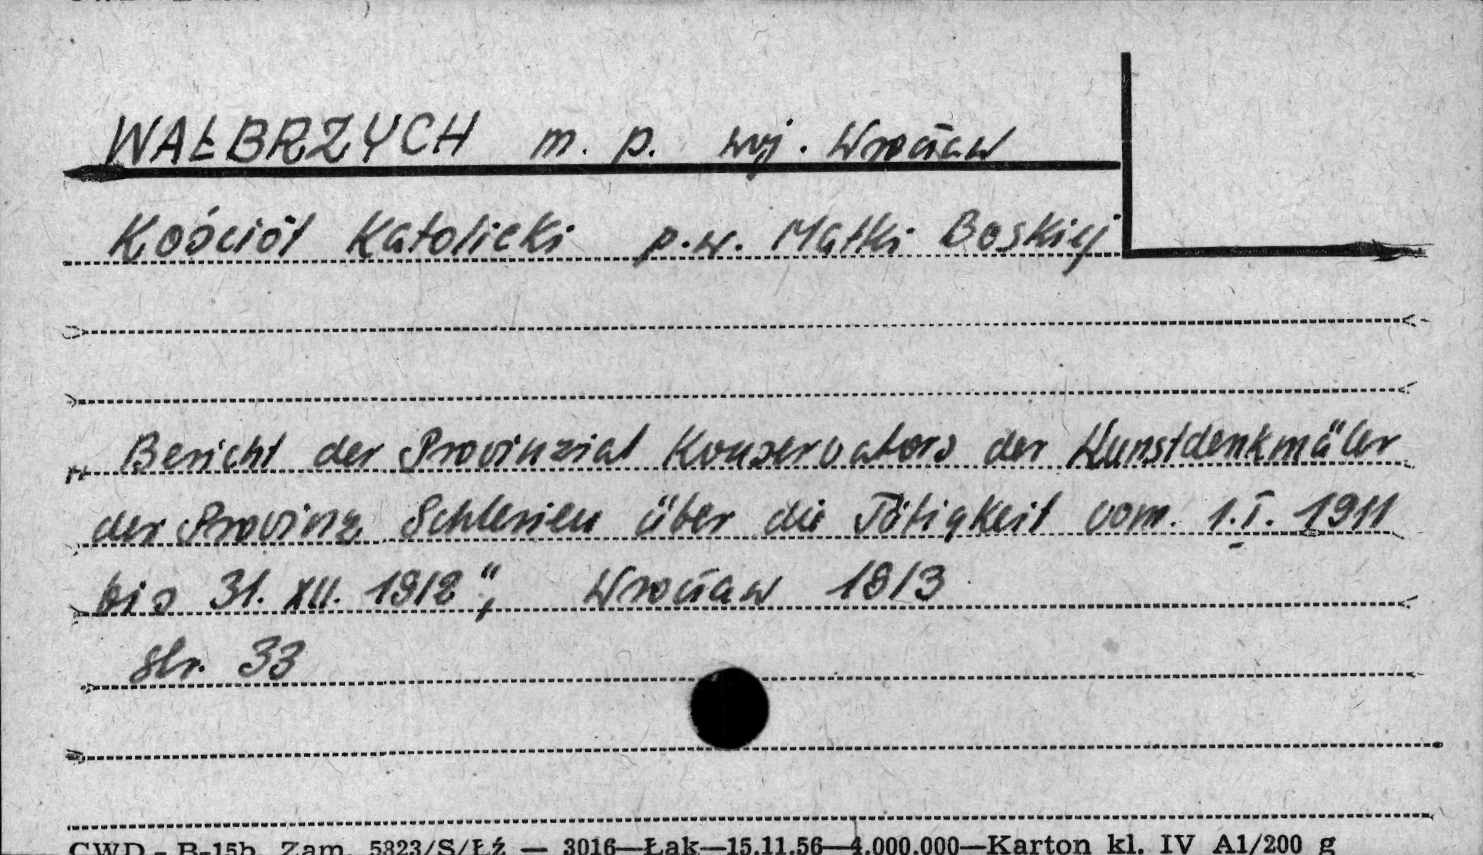 WAŁBRZYCH m. p. woj. Wrocław
Kościół Katolicki p.w. Matki Boskiej
Bericht der Provinzial Konservators der Kunstdenkmäler
der Provinz Schlesien über die Tätigkeit vom. 1.I. 1911
bis 31. XII. 1912", Wrocław 1913
str. 33
CWD - B-15b. Zam. 5823/S/Łź — 3016—Łak—15.11.56—4.000.000—Karton kl. IV A1/200 g